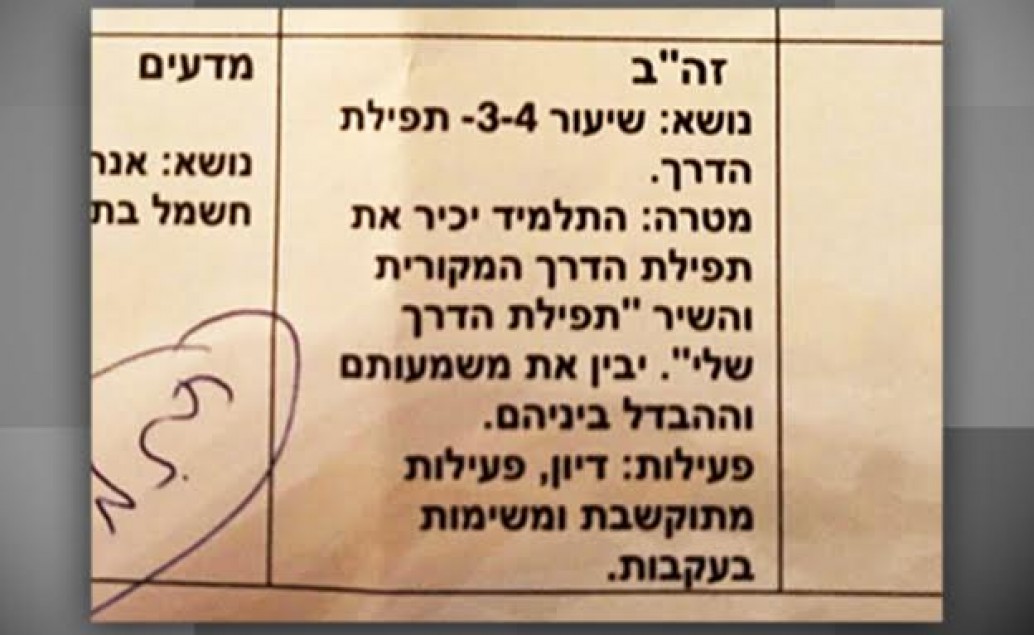 זה"ב
נושא: שיעור 3-4- תפילת
הדרך.
מטרה: התלמיד יכיר את
תפילת הדרך המקורית
והשיר "תפילת הדרך
שלי". יבין את משמעותם
וההבדל ביניהם.
פעילות: דיון, פעילות
מתוקשבת ומשימות
בעקבות.
מדעים
נושא:
חשמל